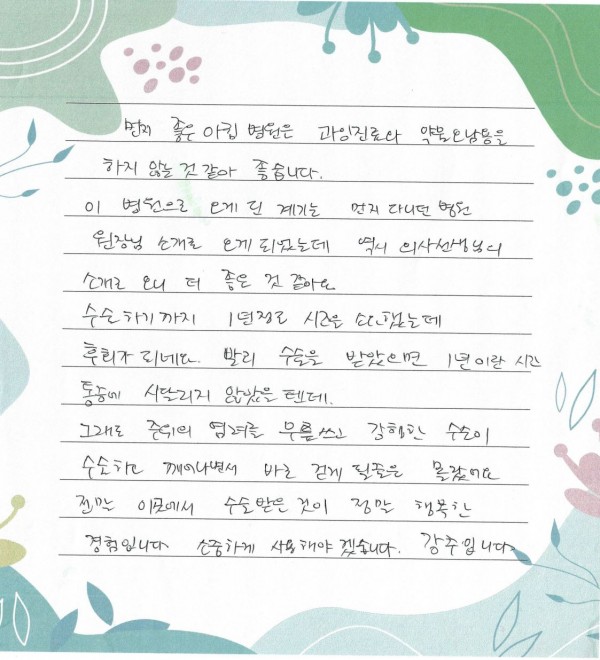 먼저 좋은 아침 병원은 과잉진료와 약물오남용을
하지 않는 것 같아 좋습니다.
이 병원으로 오게 된 계기는 먼저 다니던 병원
원장님 소개로 오게 되었는데 역시 의사선생님의
소개로 오니 더 좋은 것 같아요
수술하기까지 1년정도 시간을 소비했는데
후회가 되네요. 빨리 수술을 받았으면 1년이란 시간
통증에 시달리지 않았을 텐데.
그래도 주위의 염려를 무릅쓰고 강행한 수술이
수술하고 깨어나면서 바로 걷게 될줄은 몰랐어요
정말 이곳에서 수술받은 것이 정말 행복한
경험입니다 소중하게 사용해야 겠습니다. 강추입니다